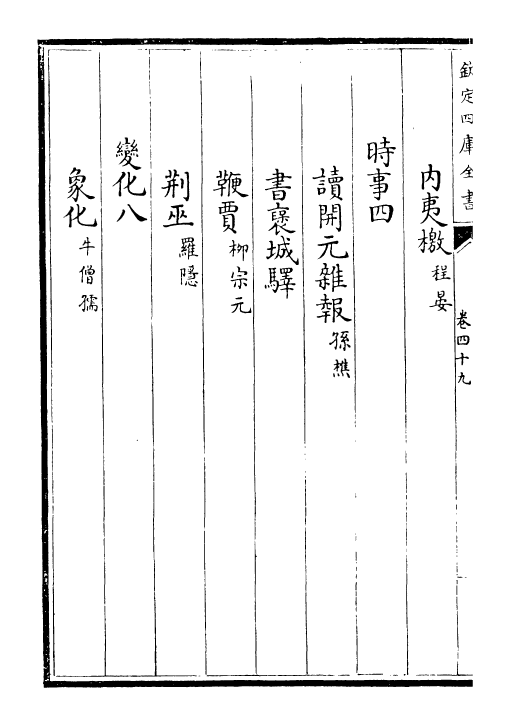 欽定四庫全書 卷四十九
內夷檄 程晏
時事四
讀開元雜報 孫樵
書褒城驛
鞭賈 柳宗元
荆巫 羅隱
變化八
象化 牛僧孺